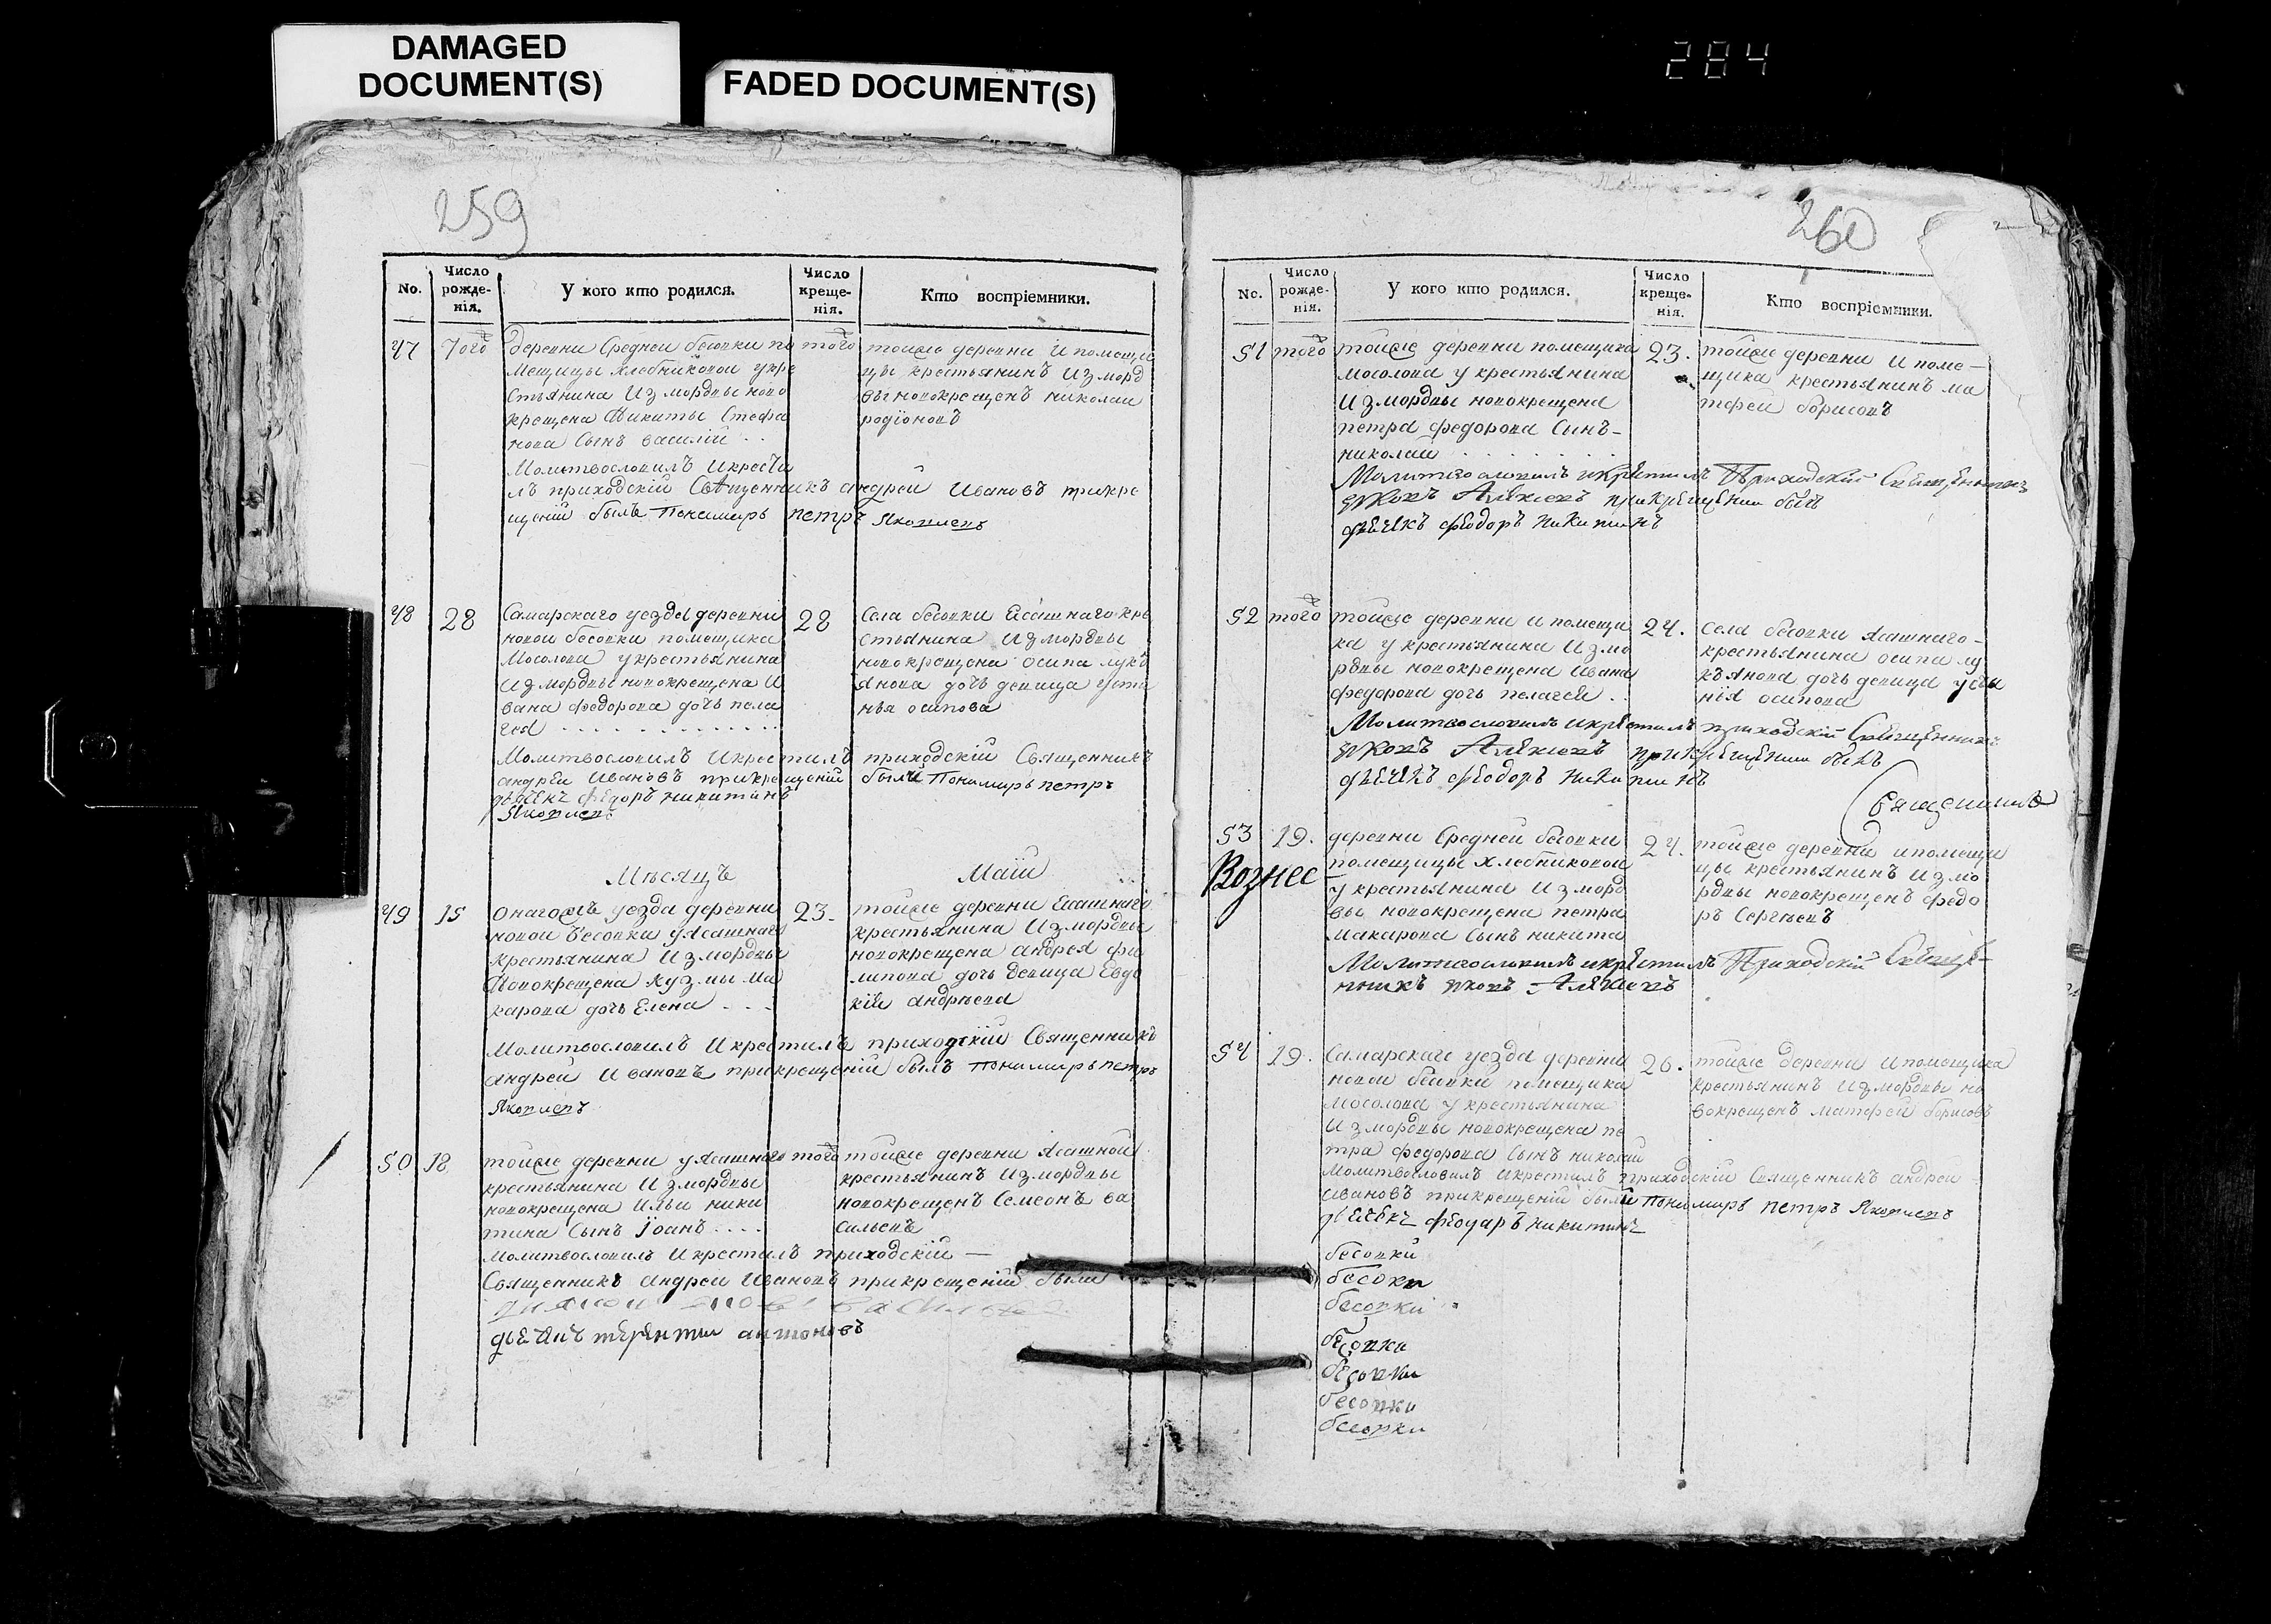 DAMAGED
DOCUMENT(S)
FADED DOCUMENT(S)
284
259
No.
Число
рожде-
нія.
У кого кто родился.
Число
креще-
нія.
Кто воспріемники.
47
того
деревни Средней бесовки по
мещицы хлебниковой укре
стьянина Из мордвы ново
крещена Никиты Стефа
нова Сынъ василій
того
тойже деревни И помещи
цы крестьянинъ Из морд
вы новокрещенъ николаи
родіоновъ
Молитвословилъ Икрести
лъ приходскій Священникъ андрей Ивановъ прикре
щеній былъ Пономарь петръ Яковлевъ
48
28
Самарскаго уезда деревни
новой бесовки помещика
Мосолова укрестьянина
Из мордвы новокрещена И
вана федорова дочь пела
гея
28
Села бесовки Ясашнаго кре
стьянина Из мордвы
новокрещена осипа лукъ
янова дочь девица усти
нья осипова
Молитвословилъ Икрестилъ приходскій Священникъ
андреи Ивановъ прикрещеній были Пономарь петръ
дьячекъ федоръ никитинъ
Яковлевъ
Месяцъ Маій
49
15
Онагожъ уезда деревни
новой бесовки уясашнаго
крестьянина Из мордвы
Новокрещена кузмы ма
карова дочь Елена
23.
тойже деревни Ясашнаго
крестьянина Из мордвы
новокрещена андрея фи
липова дочь девица Евдо
кия андреева
Молитвословилъ Икрестилъ приходскій Священникъ
андрей Ивановъ прикрещеній былъ Пономарь петръ
Яковлевъ
50
18
тойже деревни уясашнаго
крестьянина Из мордвы
новокрещена Ильи ники
тина Сынъ Іоанъ
того
тойже деревни Ясашной
крестьянинъ Из мордвы
новокрещенъ Семеонъ ва
сильевъ
Молитвословилъ Икрестилъ приходскій
Священникъ андреи Ивановъ прикрещеній были
терентии антоновъ
260
No.
Число
рожде-
нія.
У кого кто родился.
Число
креще-
нія.
Кто воспріемники.
51
того
тойже деревни помещика
мосолова у крестьянина
Из мордвы новокрещена
петра федорова Сынъ
николаи
23.
тойже деревни И поме-
щика крестьянинъ ма
тфеи борисовъ
Молитвословилъ икрестилъ Приходский Священникъ
Яковъ Алексеевъ прикрещении былъ
дьечекъ феодоръ никитинъ
52
того
тойже деревни и помещи
ка у крестьянина Из мо
рдвы новокрещена Ивана
федорова дочь пелагея
24.
села бесовки ясашнаго
крестьянина осипа лу
къянова дочь девица усти
нія осипова
Молитвословилъ икрестилъ приходский Священникъ
Яковъ Алексеевъ прикрещении былъ
дьечекъ феодоръ никитинъ
Священникъ
53
Вознес
19.
деревни Средней бесовки
помещицы хлебниковой
у крестьянина Из морд
вы новокрещена петра
макарова Сынъ никита
24.
тойже деревни ипомещи
цы крестьянинъ Из мо
рдвы новокрещенъ федо
ръ Сергеевъ
Молитвословилъ икрестилъ Приходскій Священ-
никъ Яковъ Алексеевъ
54
19.
Самарскаго уезда деревни
новой бесовки помещика
мосолова у крестьянина
Из мордвы новокрещена пе
тра федорова Сынъ николай
26.
тойже деревни Ипомещика
крестьянинъ Из мордвы но
вокрещенъ матфей борисовъ
Молитвословилъ Икрестилъ приходскій Священникъ андреи
Ивановъ прикрещеній были Пономарь петръ Яковлевъ
дьечекъ феодаръ никитинъ
бесовки
бесовки
бесовки
бесовки
бесовки
бесовки
бесовки